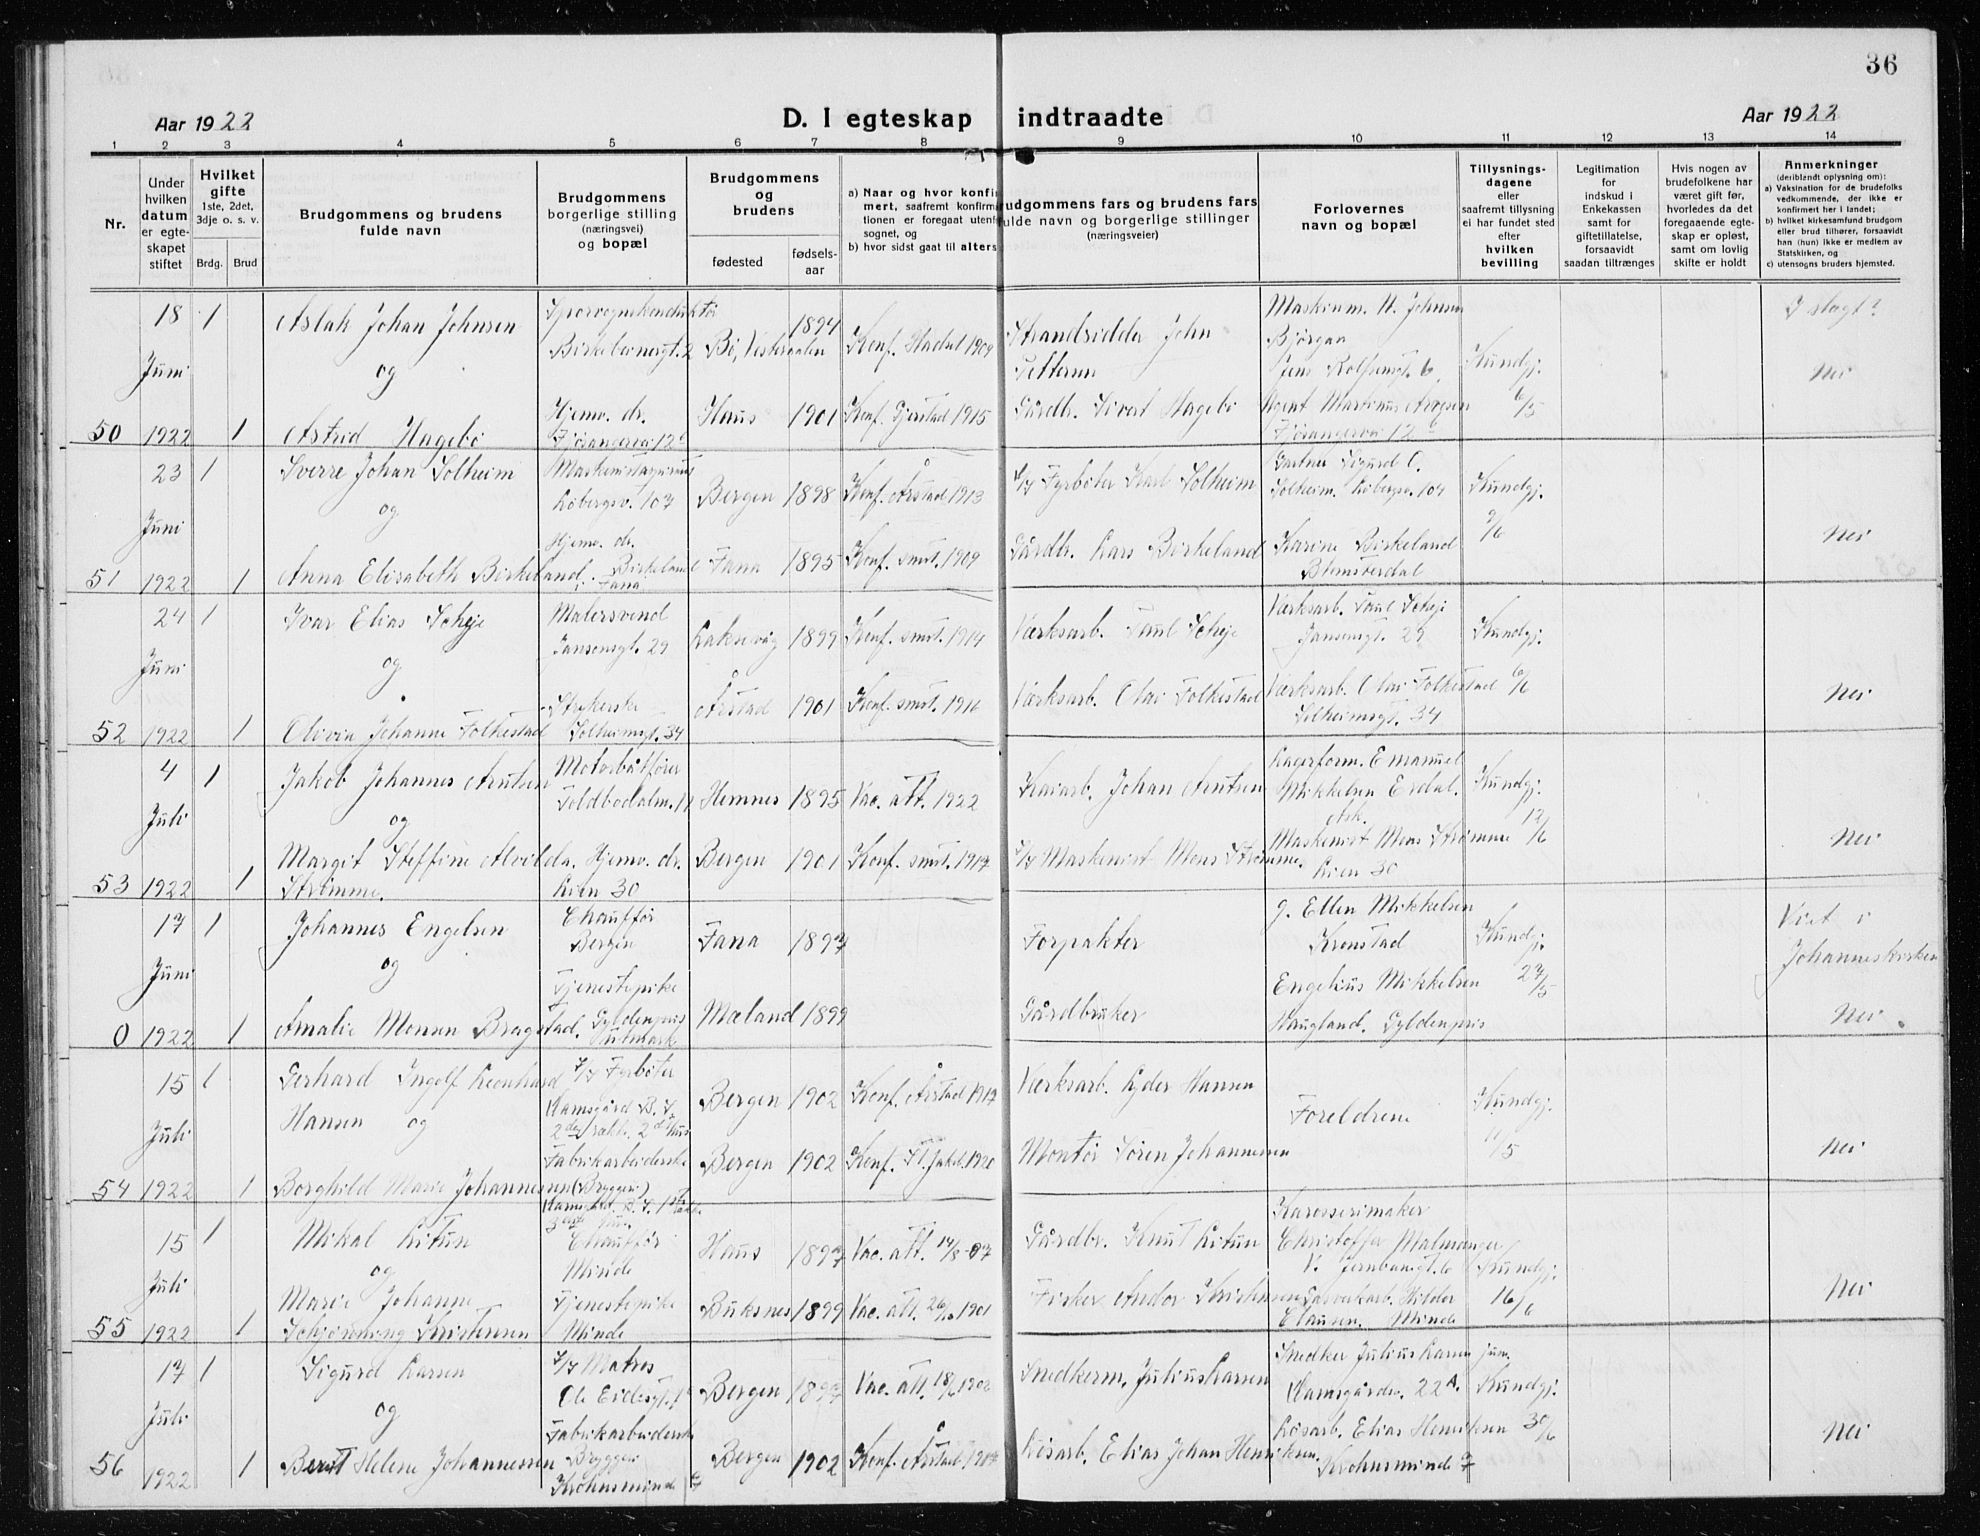 36
Aar 1922
D. I egteskap indtraadte
Aar 1922
1 2 3 4 5 6 7 8 9 10 11 12 13 14
Nr.
Under hvilken datum er egteskapet stiftet
Hvilket gifte 1ste, 2det, 3dje o. s. v.
Brdg. Brud
Brudgommens og brudens fulde navn
Brudgommens borgerlige stilling (næringsvei) og bopæl
Brudgommens og brudens
fødested fødselsaar
a) Naar og hvor konfirmert, saafremt konfirmationen er foregaat utenfor sognet, og
b) hvor sidst gaat til alters
Brudgommens fars og brudens fars fulde navn og borgerlige stillinger (næringsveier)
Forlovernes navn og bopæl
Tillysningsdagene eller saafremt tillysning ei har fundet sted efter hvilken bevilling
Legitimation for indskud i Enkekassen samt for giftetillatelse, forsaavidt saadan tiltrænges
Hvis nogen av brudefolkene har været gift før, hvorledes da det foregaaende egteskap er opløst, samt om lovlig skifte er holdt
Anmerkninger (deriblandt oplysning om):
a) Vaksination for de brudefolks vedkommende, der ikke er konfirmert her i landet;
b) hvilket kirkesamfund brudgom eller brud tilhører, forsaavidt han (hun) ikke er medlem av Statskirken, og
c) utensogns bruders hjemsted.
50 18 Juni 1922 1 1
Aslak Johan Johnsen og Astrid Hagebø
Sporvognskonduktør Birkebeinergt. 2
Hjemv. dr. Fjøsangervei 12
Bø, Vesteraalen 1894 Konf. Hadsel 1909
Haus 1901 Konf. Gjerstad 1915
Strandsidder John Pettersen
Gårdbr. Sivert Hagebø
Maskinm. H. Johnsen Bjørgan
Jens Rolfsensgt. 6
Agent Martinus
Fjøsangervei 12
Kundgj. 6/5
I slagt?
Nei
51 23 Juni 1922 1 1
Sverre Johan Solheim og Anna Elisabeth Birkeland
Løbergsv. 107
Hjemv. dr. Birkeland Fana
Bergen 1898 Konf. Årstad 1913
Fana 1895 Konf. smst. 1909
f/v Fyrbøter Karl Solheim
Gårdbr. Lars Birkeland
Gartner Sigurd C. Solheim. Løbergsv. 107
Karine Birkeland Blomsterdal
Kundgj. 9/6
Nei
52 24 Juni 1922 1 1
Ivar Elias Scheje og Olivia Johanne Folkestad
Malersvend Jansensgt. 29
Strykerske Solheimsgt. 34
Laksevåg 1899 Konf. smst. 1914
Årstad 1901 Konf. smst. 1916
Værksarb. Paul Scheje
Værksarb. Olai Folkestad
Værksarb. Paul Scheje Jansensgt. 29
Værksarb. Olai Folkestad Solheimsgt. 34
Kundgj. 6/6
Nei
53 4 Juli 1922 1 1
Jakob Johannes Arntsen og Margit Steffine Alvilda Strømme.
Motorbåtfører Toldbodalm. 14
Hjemv. dr. Lien 30
Hemnes 1895 Vac. att. 1922
Bergen 1901 Konf. smst. 1917
Kaiarb. Johan Arntsen
f/v Maskinist Mons Strømme.
Lagerform. Emanuel Mikkelsen Erdal. Ask.
Maskinist Mons Strømme Lien 30
Kundgj. 12/6
Nei
0 17 Juni 1922 1 1
Johannes Engelsen og Amalie Monsen Bragstad.
Chauffør Bergen
Tjenestepike Gyldenpris
Fana 1897
Mæland 1899
Forpakter
Gårdbruker
g. Ellen Mikkelsen Kronstad
Engelius Mikkelsen Haugland. Gyldenpris
Kundgj. 27/5
Viet i Johanneskirken
Nei.
54 15 Juli 1922 1 1
Gerhard Ingolf Leonhard Hansen og Borghild Marie Johannessen
f/v Fyrbøter Damsgård B. S. 2den række. 2d hus
Fabrikarbeiderske (Bryggeri)
Bergen 1902 Konf. Årstad 1917
Bergen 1902 Konf. St. Jakob. 1920
Værksarb. Lyder Hansen
Montør Søren Johannessen
Foreldrene
Kundgj. 11/5
Nei
55 15 Juli 1922 1 1
Mikal Litun og Marie Johanne Schjønning Kristensen
Chauffør Minde
Tjenestepike Minde
Haus 1897 Vac. att. 14/8-07
Buksnes 1899 Vac. att. 26/10 1901
Gårdbr. Knut Litun
Fisker Andor Kristensen
Karosserimaker Christoffer Malmanger V. Jernbanegt. 6
Gasverkarb. Hilder Clausen. Minde
Kundgj. 16/6
Nei
56 17 Juli 1922 1 1
Sigurd Larsen og Berit Helene Johannessen
f/v Matros
Fabrikarbeiderske Bryggeri Krohnsminde 7
Bergen 1897 Vac. att. 18/6 1902
Bergen 1902 Konf. Årstad 1917
Snedkerm. Julius Larsen
Løsarb. Elias Johan Henriksen.
Snedker Julius Larsen jun. Damsgårdsv. 22A.
Løsarb. Elias Henriksen Krohnsminde 7
Kundgj. 30/6
Nei